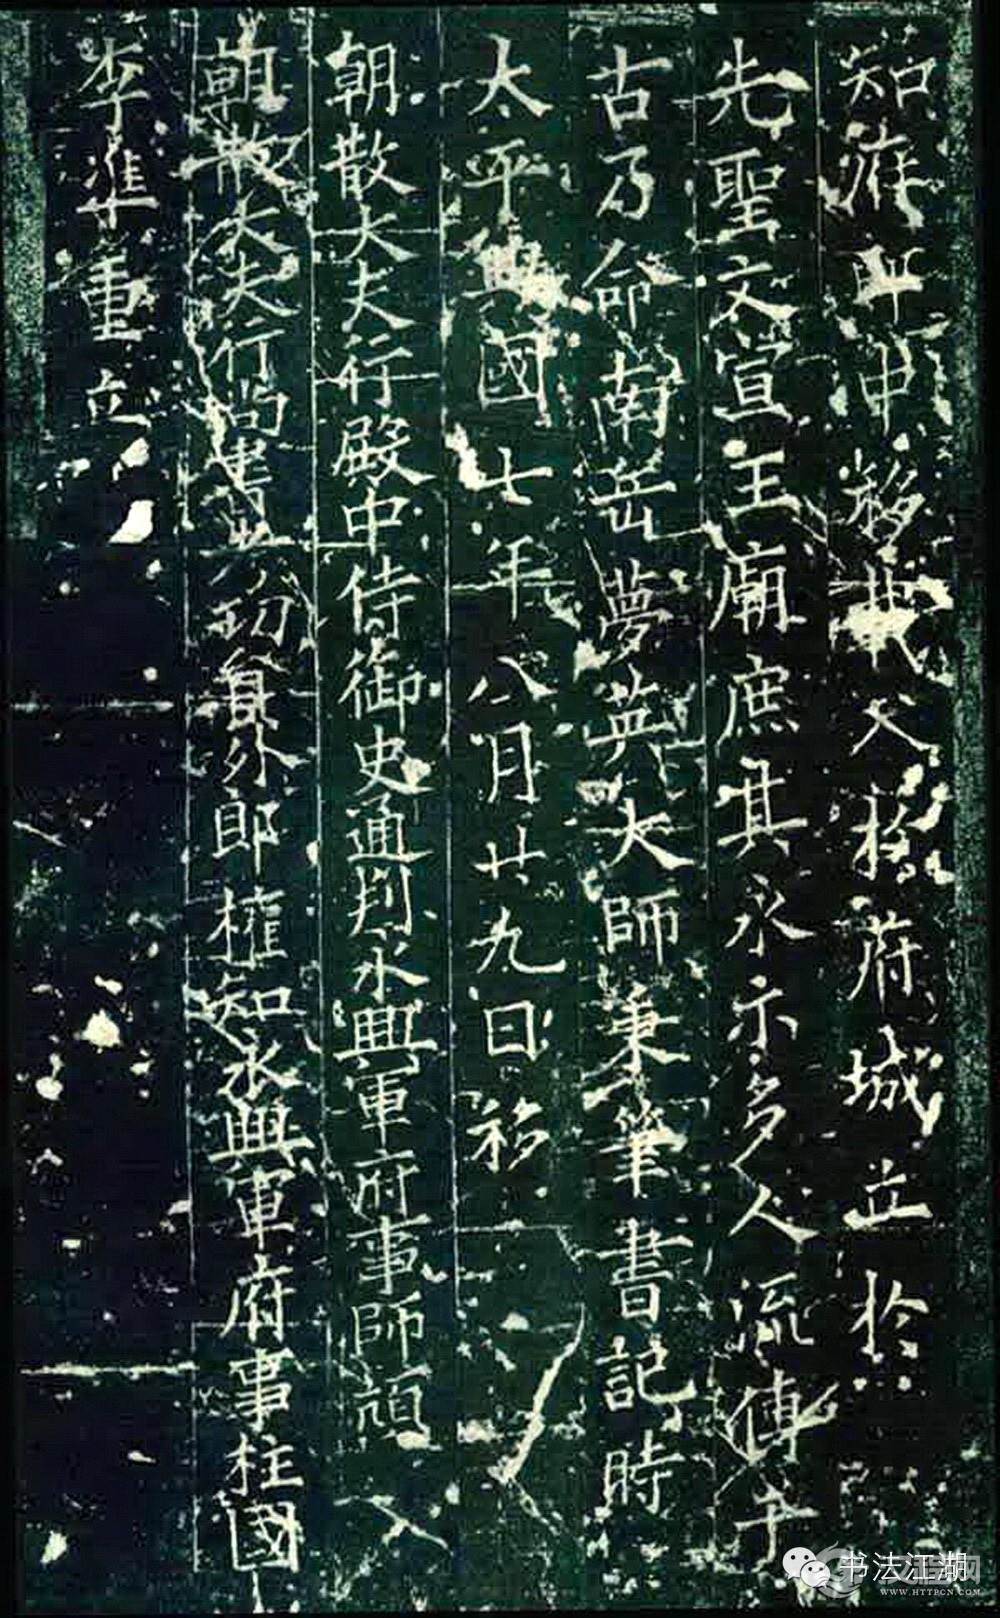 知府
移
入於府城立於
先聖文宣王廟庶其永示多人流傳千
古乃命南岳夢英大師秉筆書記時
太平興國七年八月廿九日移
朝散大夫行殿中侍御史通判永興軍府事師頏
朝散大夫行尚書 員外郎權知永興軍府事柱國
李準重立
书法江湖
WWW.HTTPCN.COM